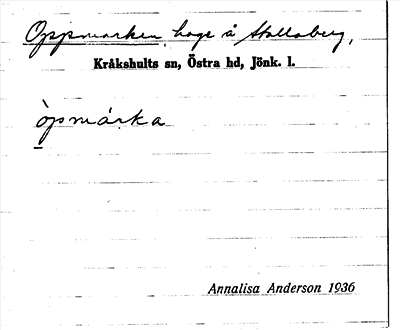 Oppmarken, hage å Stallaberg,
Kråkshults sn, Östra hd, Jönk. l.
òpmárka
Annalisa Anderson 1936